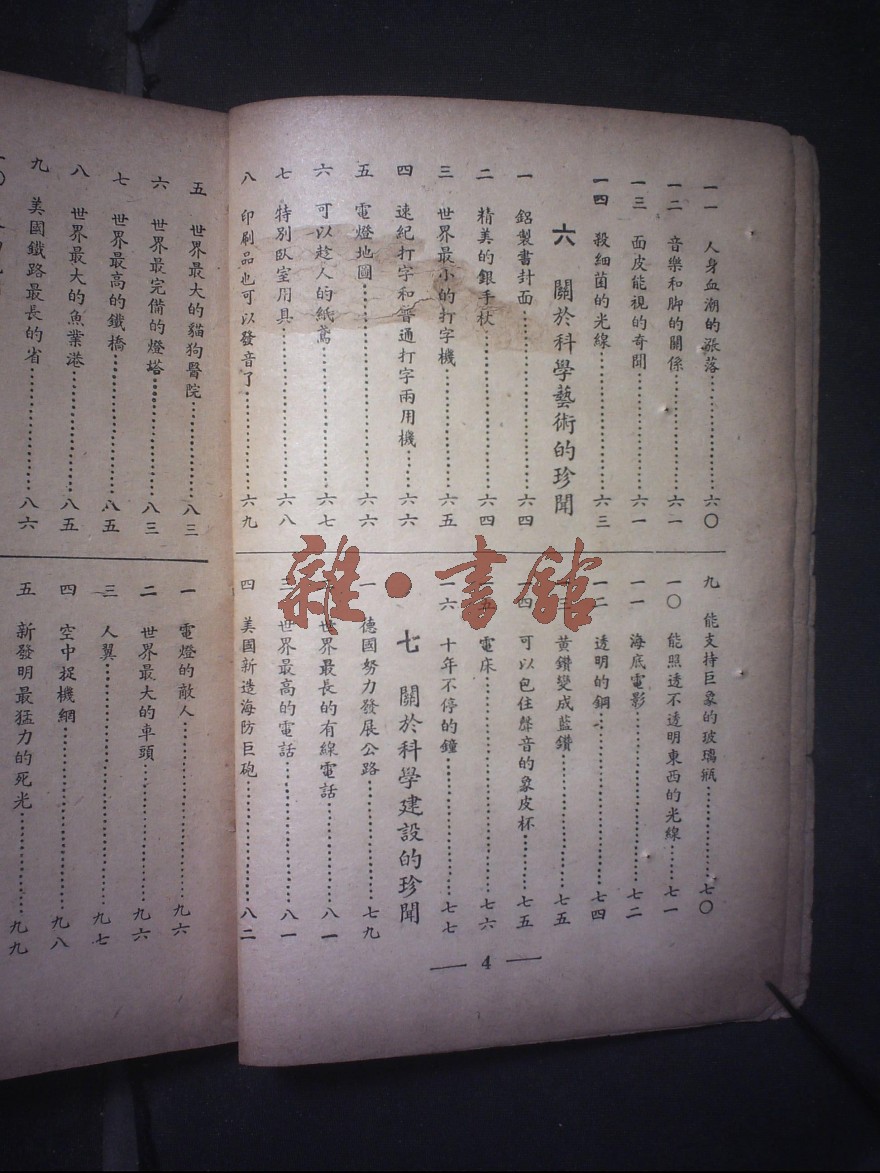 一一 人身血潮的漲落…………六〇
一二 音樂和脚的關係…………六一
一三 面皮能視的奇聞…………六一
一四 殺細菌的光線…………六三
六 關於科學藝術的珍聞
一 鋁製書封面…………六四
二 精美的銀手杖…………六四
三 世界最小的打字機…………六五
四 速紀打字和普通打字兩用機……六六
五 電燈地圖…………六六
六 可以趁人的紙鳶…………六七
七 特別臥室用具…………六八
八 印刷品也可以發音了…………六九
九 能支持巨象的玻璃瓶…………七〇
一〇 能照透不透明東西的光線……七一
一一 海底電影…………七二
一二 透明的鋼…………七四
一三 黃鑽變成藍鑽…………七五
一四 可以包住聲音的象皮杯……七五
一五 電床…………七六
一六 十年不停的鐘…………七七
七 關於科學建設的珍聞
一 德國努力發展公路…………七九
世界最長的有線電話…………八一
三 世界最高的電話…………八一
四 美國新造海防巨砲…………八二
— 4 —
五 世界最大的貓狗醫院…………八三
六 世界最完備的燈塔…………八三
七 世界最高的鐵橋…………八五
八 世界最大的魚業港…………八五
九 美國鐵路最長的省…………八六
一〇
一 電燈的敵人…………九六
二 世界最大的車頭…………九六
三 人翼…………九七
四 空中捉機網…………九八
五 新發明最猛力的死光…………九九
雜·書館